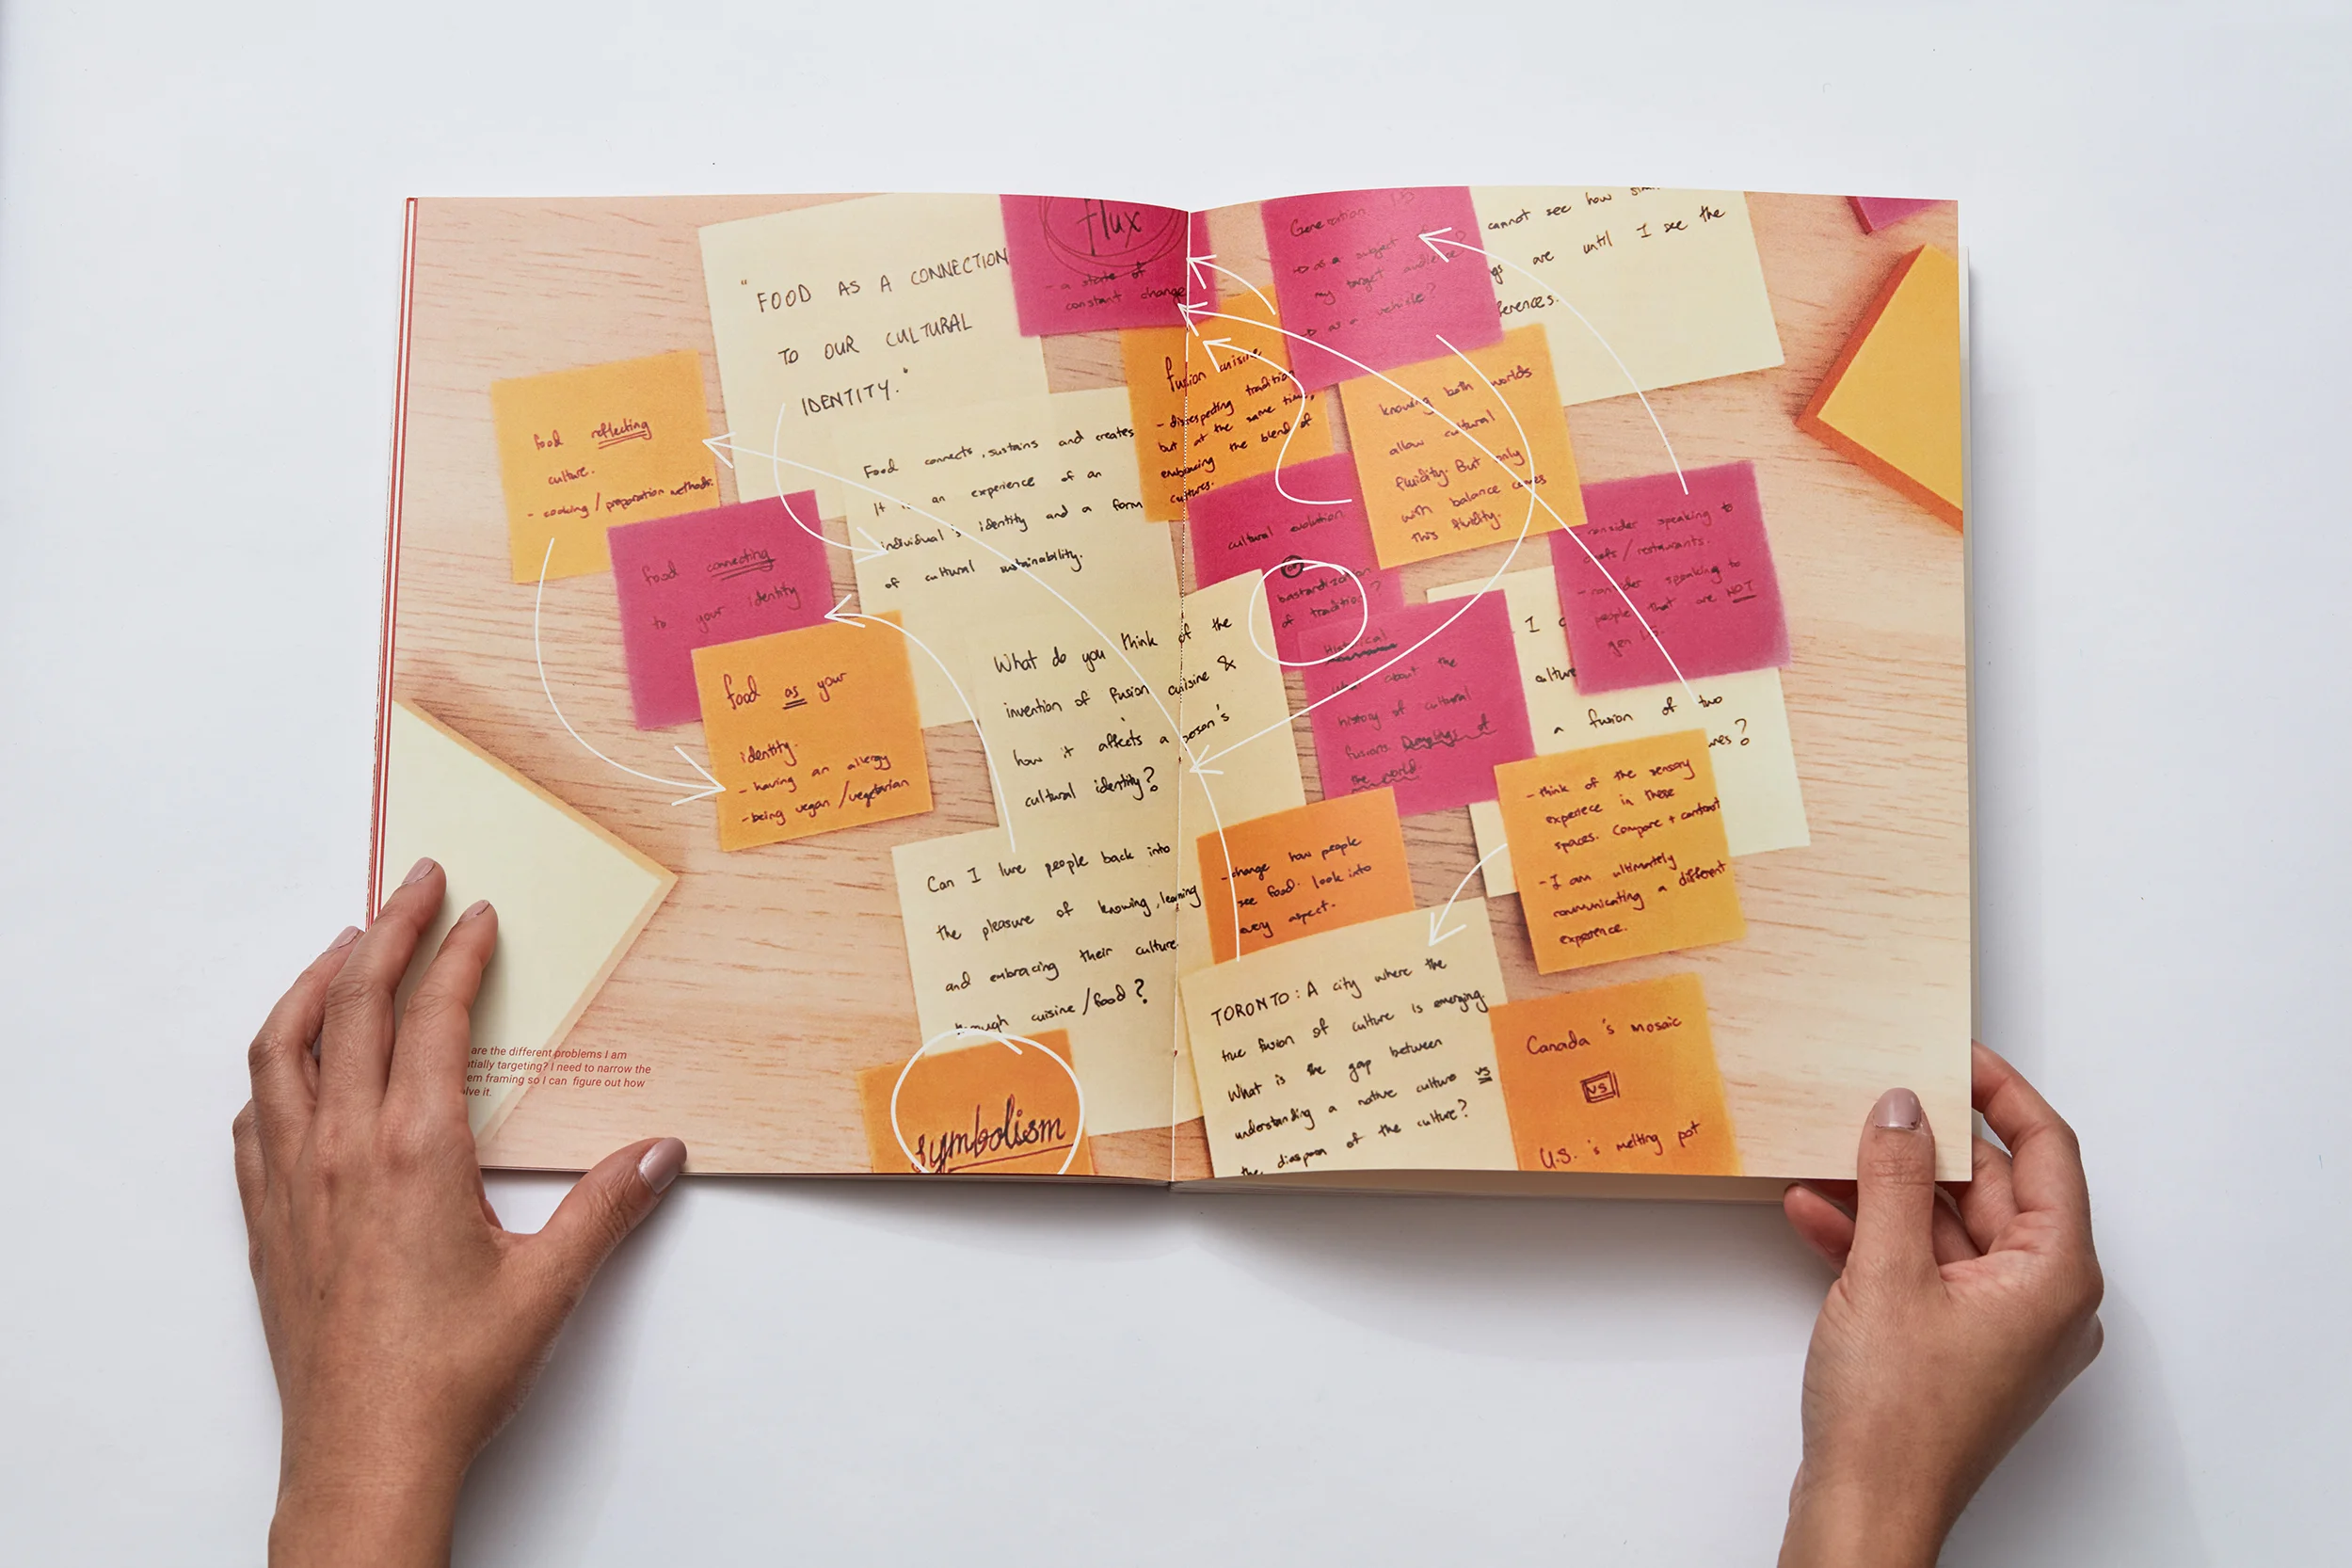 " FOOD AS A CONNECTION
TO OUR CULTURAL
IDENTITY. "
flux
- a state of
constant change
food reflecting
culture.
- cooking / preparation methods.
food connecting
to your identity
food as your
identity.
- having an allergy
- being vegan / vegetarian
Food connects, sustains and creates
It is an experience of an
individual's identity and a form
of cultural sustainability.
What do you think of the
invention of fusion cuisine &
how it affects a person's
cultural identity?
Can I lure people back into
the pleasure of knowing, learning
and embracing their culture
through cuisine / food?
symbolism
are the different problems I am
tially targeting? I need to narrow the
em framing so I can figure out how
lve it.
fusion cuisine
- disrespecting tradition
but at the same time,
embracing the blend of
cultures.
Generation 1.5
as a subject
my target audience?
as a vehicle?
cannot see how
are until I see the
ferences.
knowing both worlds
allow cultural
fluidity. But only
with balance comes
this fluidity.
cultural evolution
or
bastardization
of tradition?
Historical
what about the
history of cultural
fusions
the world.
consider speaking to
chefs / restaurants.
- consider speaking to
people that are NOT
gen 1.5.
I
culture
a fusion of two
ures?
- think of the sensory
experiece in these
spaces. Compare + contrast
- I am ultimately
communicating a different
experience.
- change how people
see food. look into
every aspect.
TORONTO: A city where the
true fusion of culture is emerging.
What is the gap between
understanding a native culture vs
the diaspora of the culture?
Canada's mosaic
vs
U.S.'s melting pot